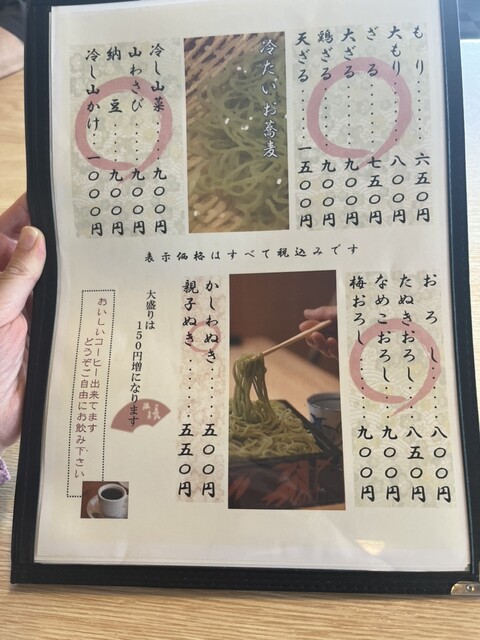 もり......六五〇円
大もり......八〇〇円
ざる......七五〇円
大ざる......九〇〇円
鶏ざる......九〇〇円
天ざる......一五〇〇円
冷たいお蕎麦
冷し山菜......九〇〇円
山わさび......九〇〇円
納豆......九〇〇円
冷し山かけ 一〇〇〇円
表示価格はすべて税込みです
おろし......八〇〇円
たぬきおろし......八五〇円
なめこおろし......九〇〇円
梅おろし......九〇〇円
かしわぬき......五〇〇円
親子ぬき......五五〇円
大盛りは
150円増になります
おいしいコーヒー出来てます
どうぞご自由にお飲み下さい